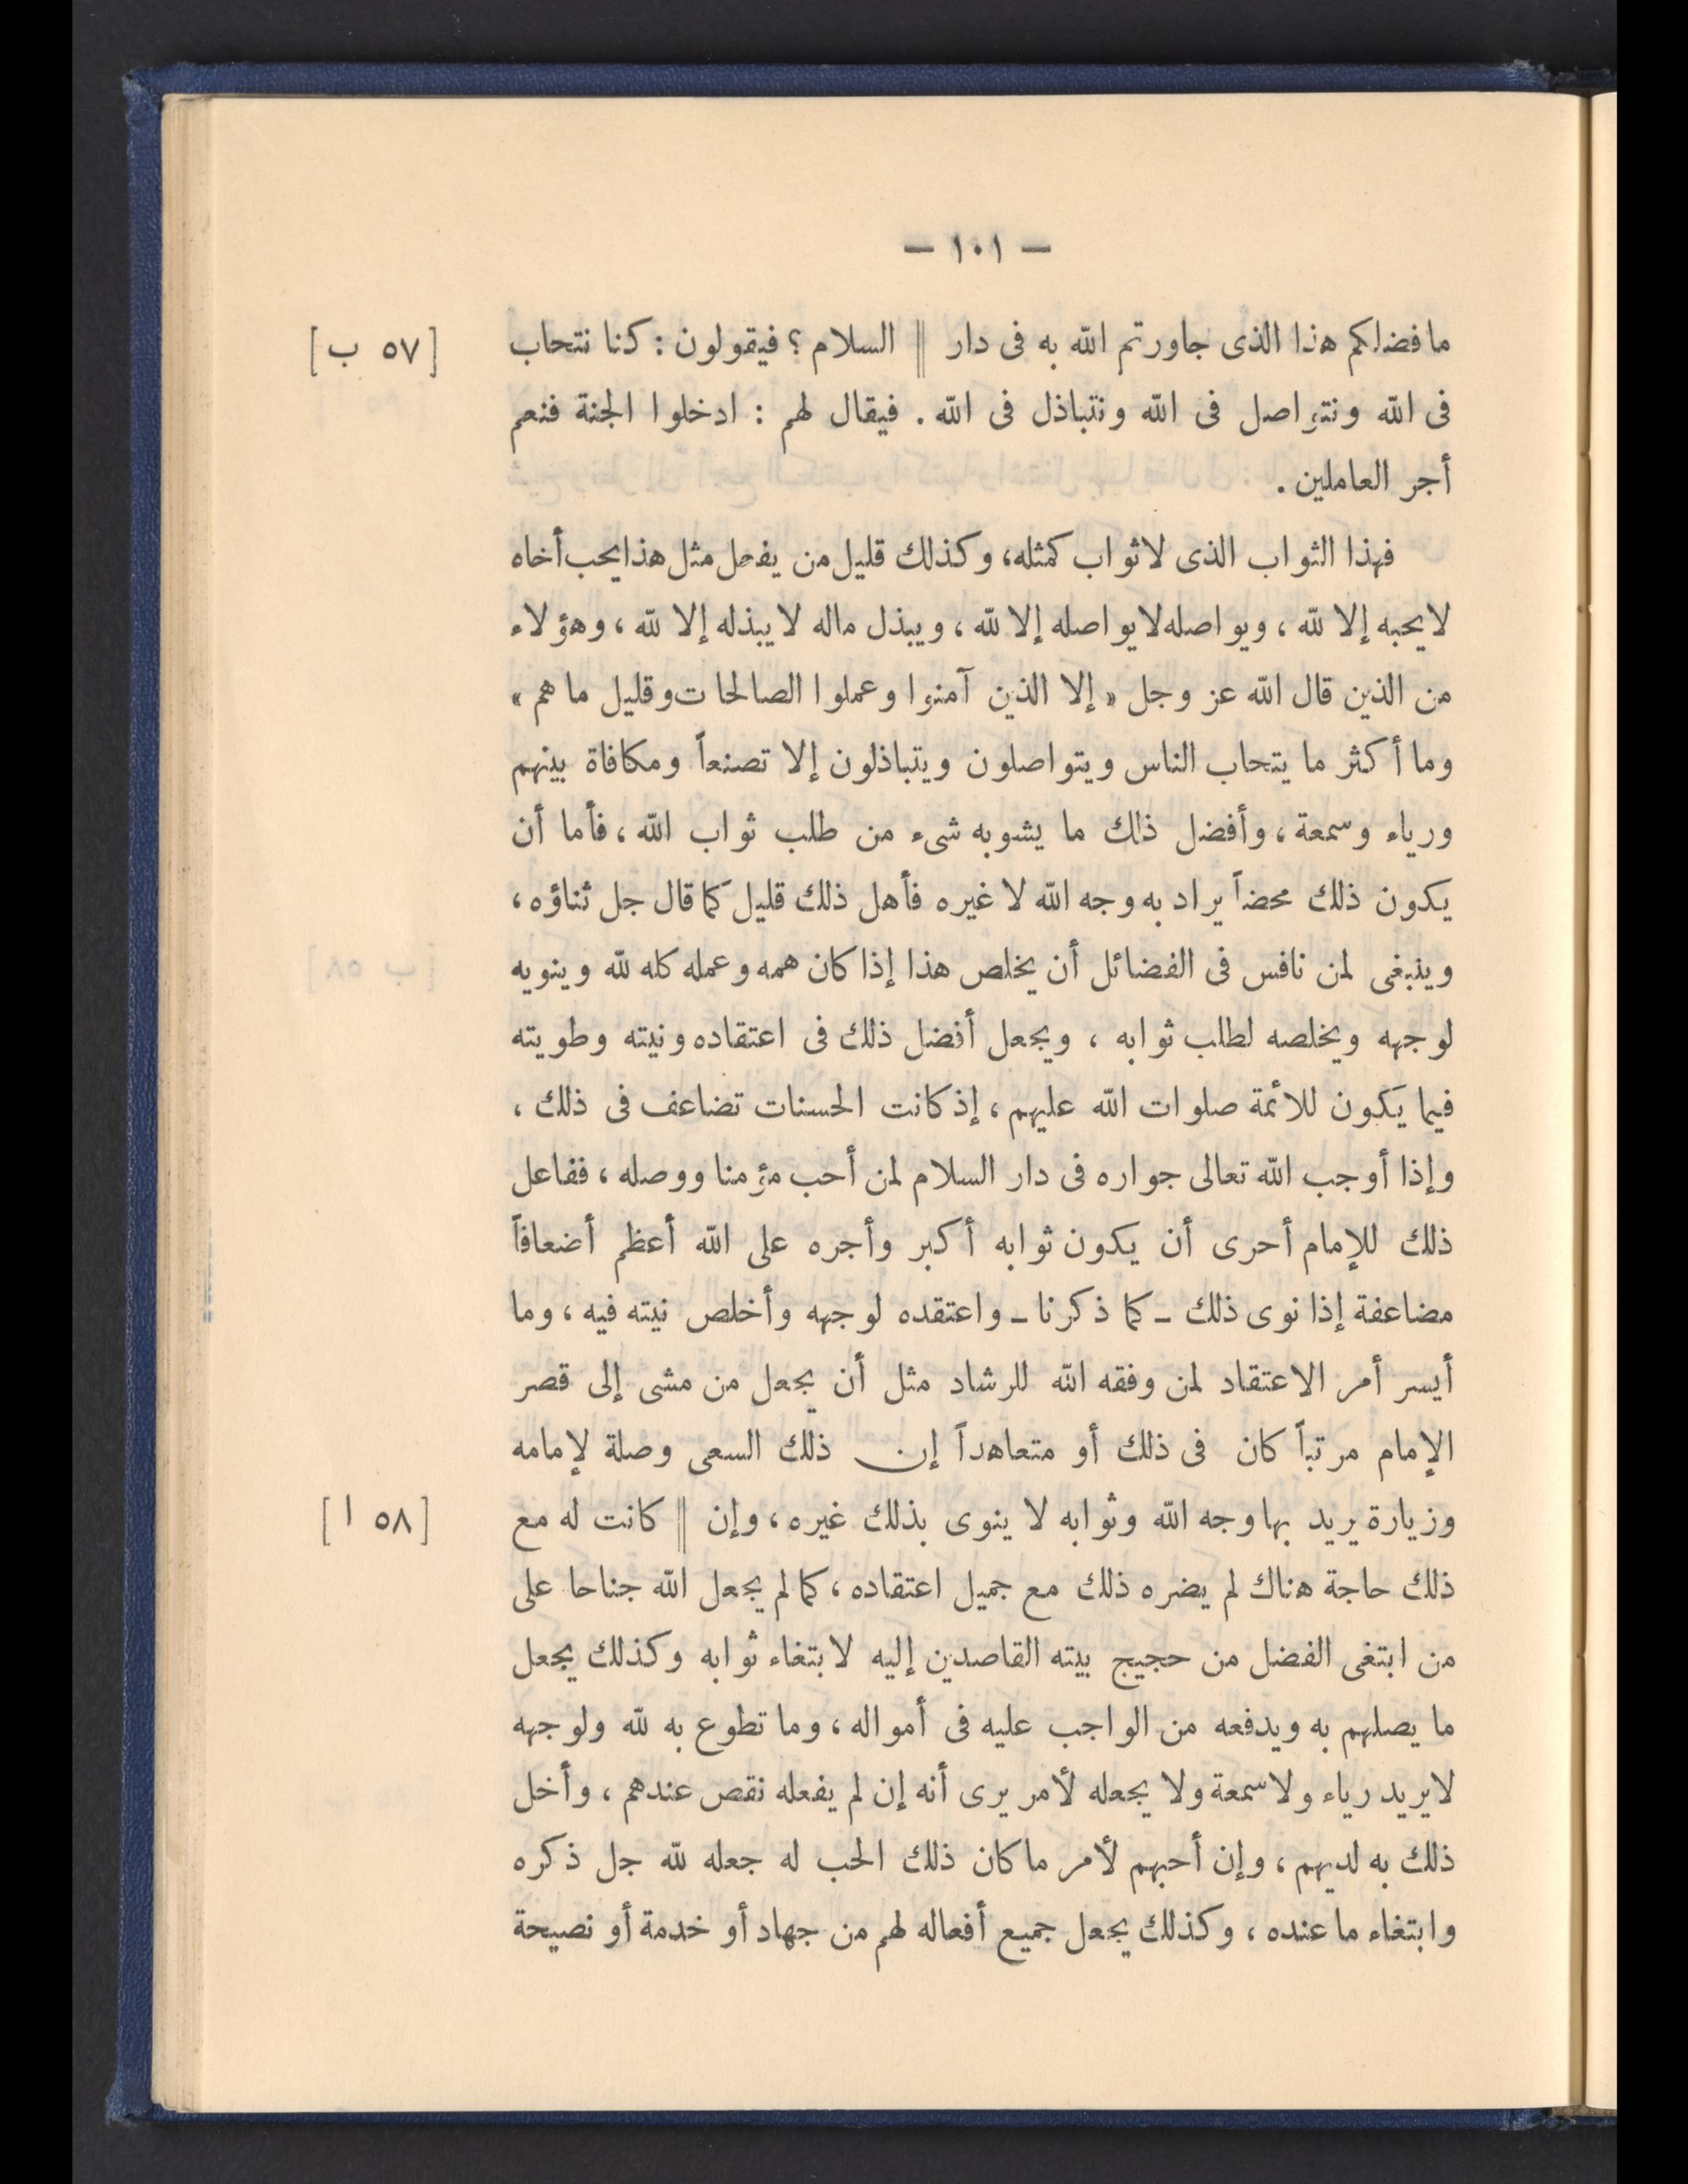 — ١٠١ —
ما فضلكم هذا الذى جاورتم الله به فى دار || السلام ؟ فيقولون : كنا نتحاب [ ٥٧ ب ]
فى الله ونتواصل فى الله ونتباذل فى الله . فيقال لهم : ادخلوا الجنة فنعم
أجر العاملين .
فهذا الثواب الذى لا ثواب كمثله، وكذلك قليل من يفعل مثل هذا يحب أخاه
لا يحبه إلا لله ، ويواصله لا يواصله إلا لله ، ويبذل ماله لا يبذله إلا لله ، وهؤلاء
من الذين قال الله عز وجل « إلا الذين آمنوا وعملوا الصالحات وقليل ما هم »
وما أكثر ما يتحاب الناس ويتواصلون ويتباذلون إلا تصنعاً ومكافاة بينهم
ورياء وسمعة ، وأفضل ذلك ما يشوبه شىء من طلب ثواب الله ، فأما أن
يكون ذلك محضاً يراد به وجه الله لا غيره فأهل ذلك قليل كما قال جل ثناؤه ،
وينبغى لمن نافس فى الفضائل أن يخلص هذا إذا كان همه وعمله كله لله وينويه
لوجهه ويخلصه لطلب ثوابه ، ويجعل أفضل ذلك فى اعتقاده ونيته وطويته
فيما يكون للأئمة صلوات الله عليهم ، إذ كانت الحسنات تضاعف فى ذلك ،
وإذا أوجب الله تعالى جواره فى دار السلام لمن أحب مؤمنا ووصله ، ففاعل
ذلك للإمام أحرى أن يكون ثوابه أكبر وأجره على الله أعظم أضعافاً
مضاعفة إذا نوى ذلك ـ كما ذكرنا ـ واعتقده لوجهه وأخلص نيته فيه ، وما
أيسر أمر الاعتقاد لمن وفقه الله للرشاد مثل أن يجعل من مشى إلى قصر
الإمام مرتباً كان فى ذلك أو متعاهداً إن ذلك السعى وصلة لإمامه
وزيارة يريد بها وجه الله وثوابه لا ينوى بذلك غيره ، وإن || كانت له مع [ ٥٨ ا ]
ذلك حاجة هناك لم يضره ذلك مع جميل اعتقاده ، كما لم يجعل الله جناحا على
من ابتغى الفضل من حجيج بيته القاصدين إليه لابتغاء ثوابه وكذلك يجعل
ما يصلهم به ويدفعه من الواجب عليه فى أمواله ، وما تطوع به لله ولوجهه
لا يريد رياء ولا سمعة ولا يجعله لأمر يرى أنه إن لم يفعله نقص عندهم ، وأخل
ذلك به لديهم ، وإن أحبهم لأمر ما كان ذلك الحب له جعله لله جل ذكره
وابتغاء ما عنده ، وكذلك يجعل جميع أفعاله لهم من جهاد أو خدمة أو نصيحة